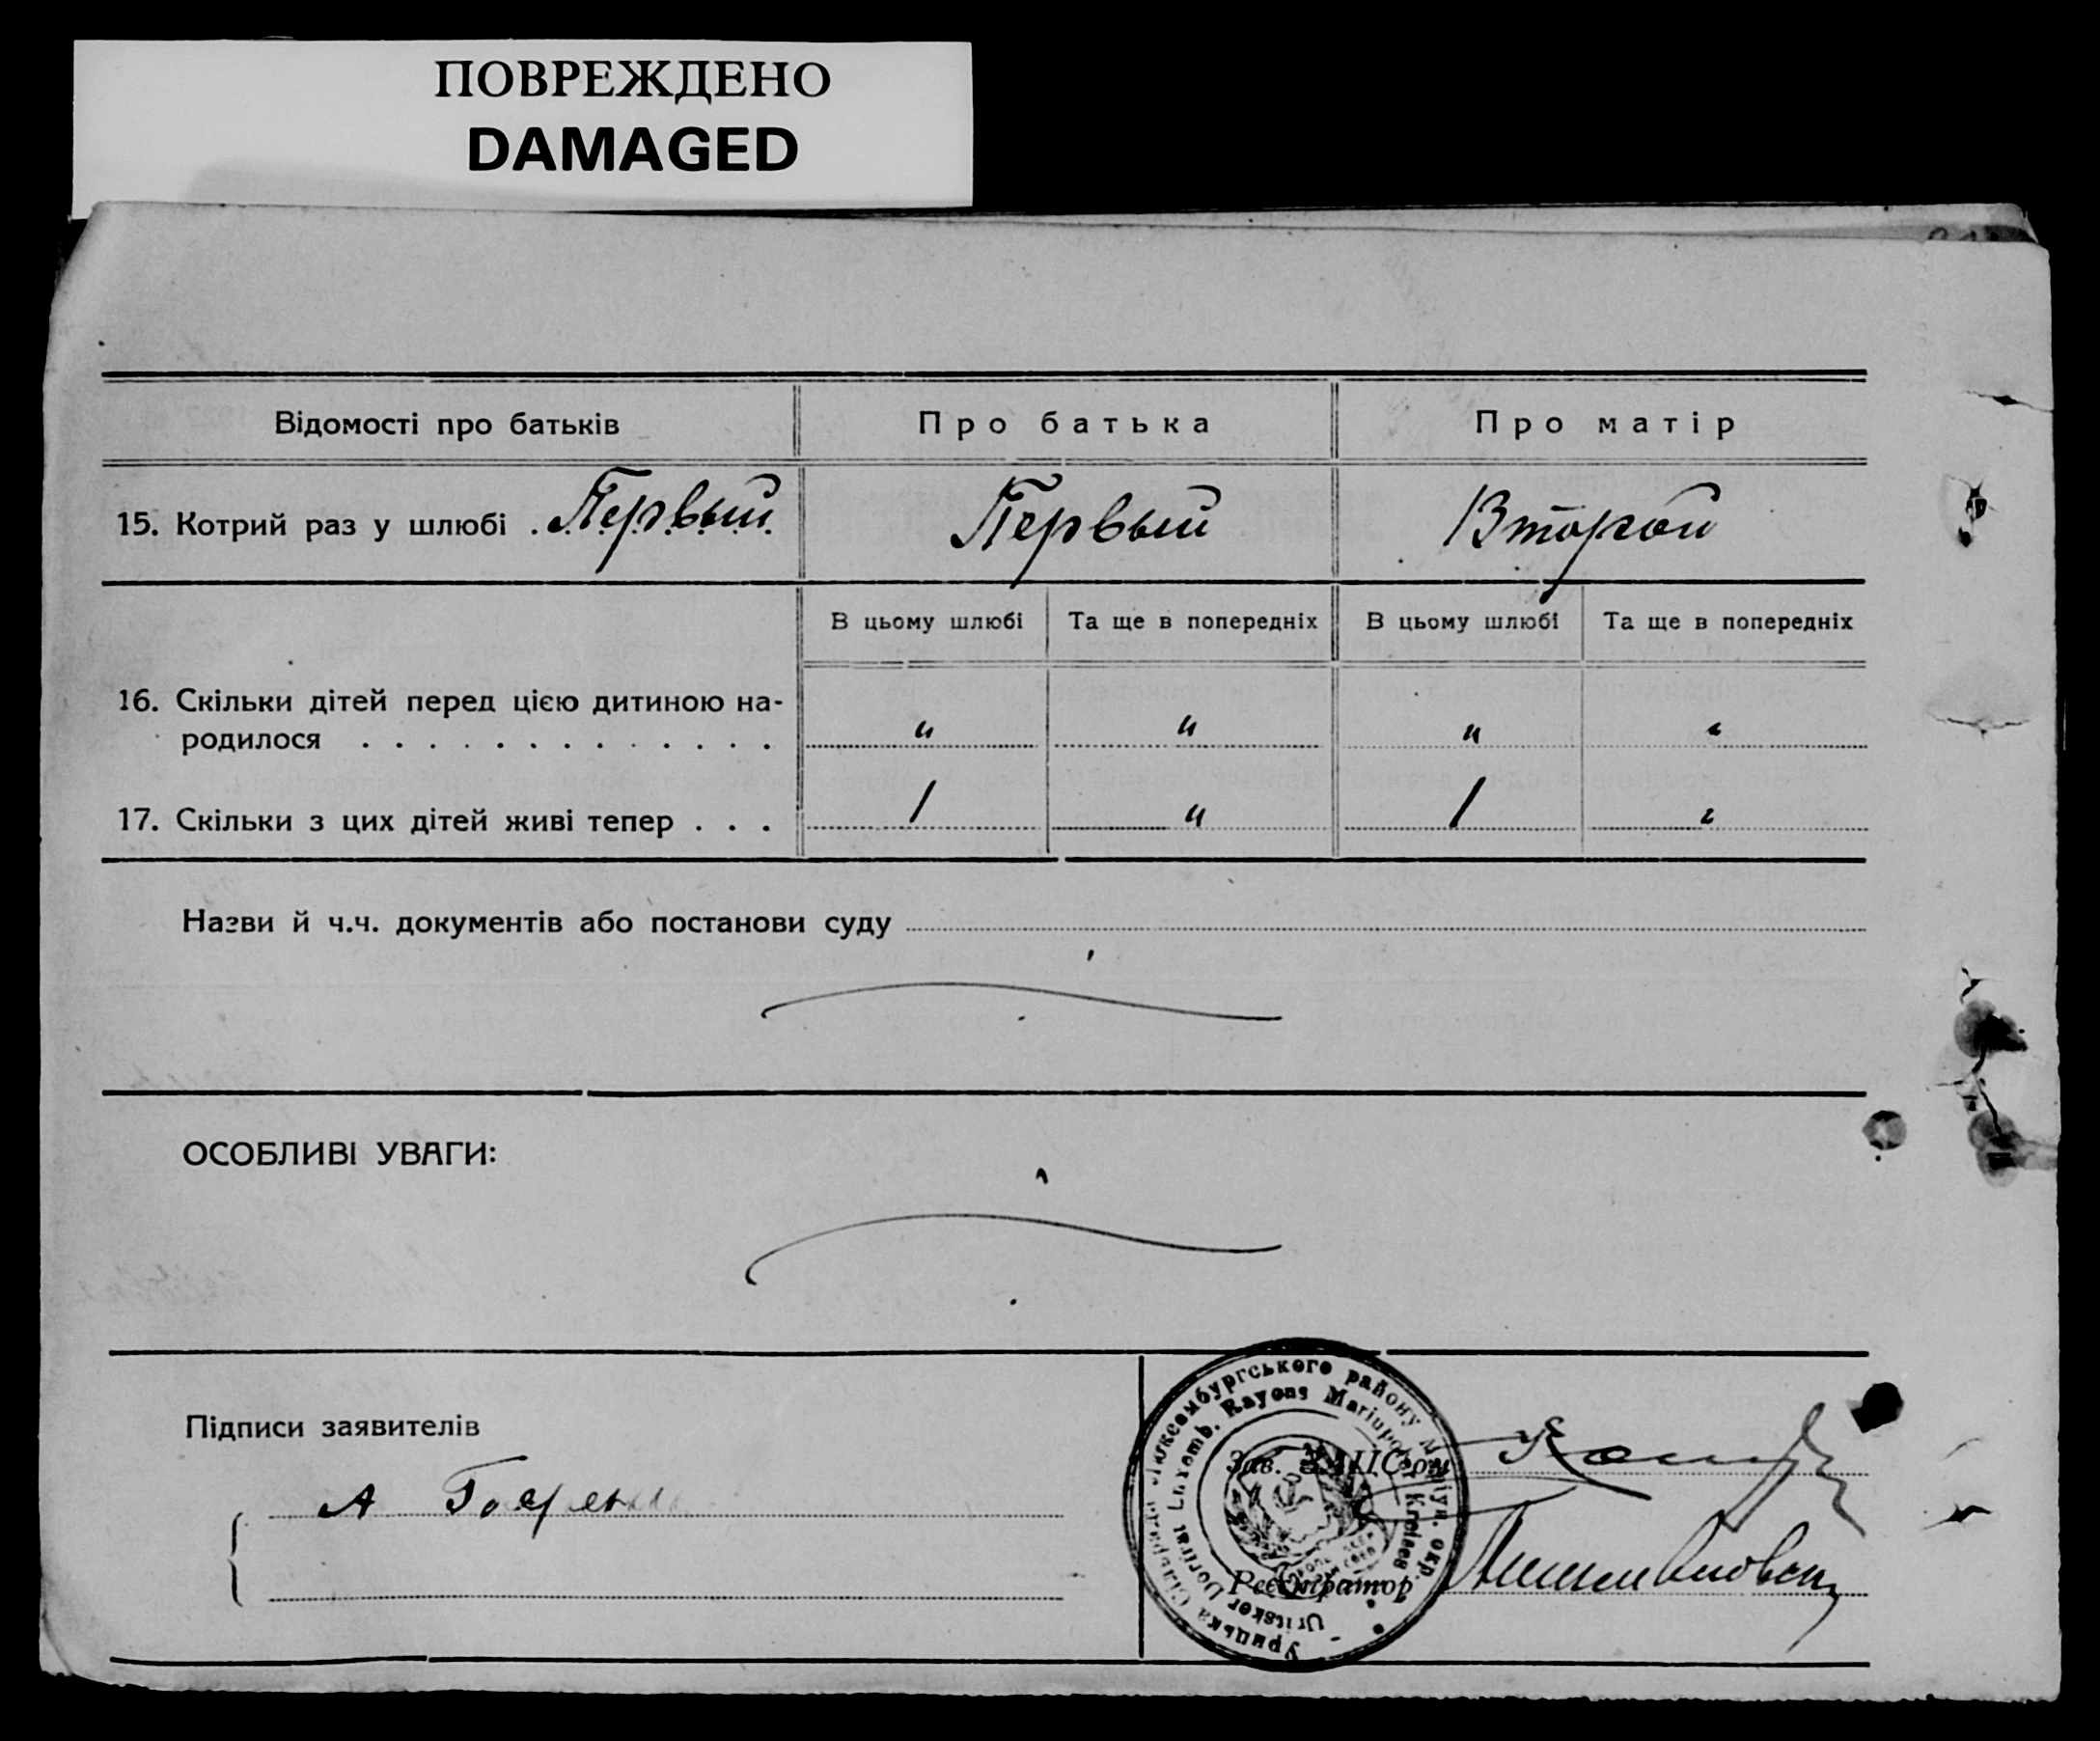 ПОВРЕЖДЕНО
DAMAGED
Відомості про батьків
Про батька
Про матір
15. Котрий раз у шлюбі . Первый
Первый
Второй
В цьому шлюбі
Та ще в попередніх
В цьому шлюбі
Та ще в попередніх
16. Скільки дітей перед цією дитиною на-
родилося . . . . . . . . . . . . .
" " " "
17. Скільки з цих дітей живі тепер . . .
1 " 1 "
Назви й ч.ч. документів або постанови суду
ОСОБЛИВІ УВАГИ:
Підписи заявителів
А
Зав. ЗАЦС'ом
Реєстратор
Урицька Сільрада Люксембургського району Маріуп. окр.
Uritsker Dorfrat Luxemb. Rayons Mariupoler Kreises